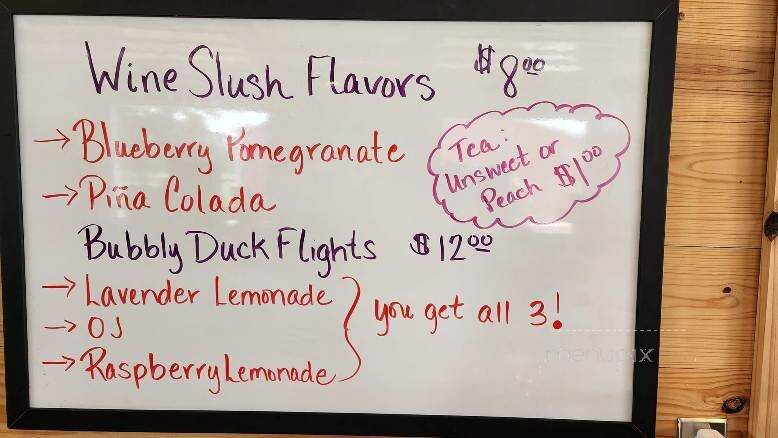 Wine Slush Flavors $8.00
→ Blueberry Pomegranate
→ Piña Colada
Tea:
Unsweet or
Peach $1.00
Bubbly Duck Flights $12.00
→ Lavender Lemonade
→ OJ
→ Raspberry Lemonade
you get all 3!
menupix